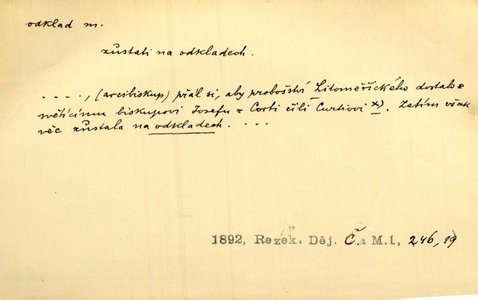 odklad m.
zůstati na odkladech.
. . . . , (arcibiskup) přál si, aby proboství Litoměřického dostalo se
světícímu biskupovi Josefu z Corti čili Curtiovi x). Zatím však
věc zůstala na odkladech. . . .
1892, Rezek. Děj. Č. a M. 1, 246, 19